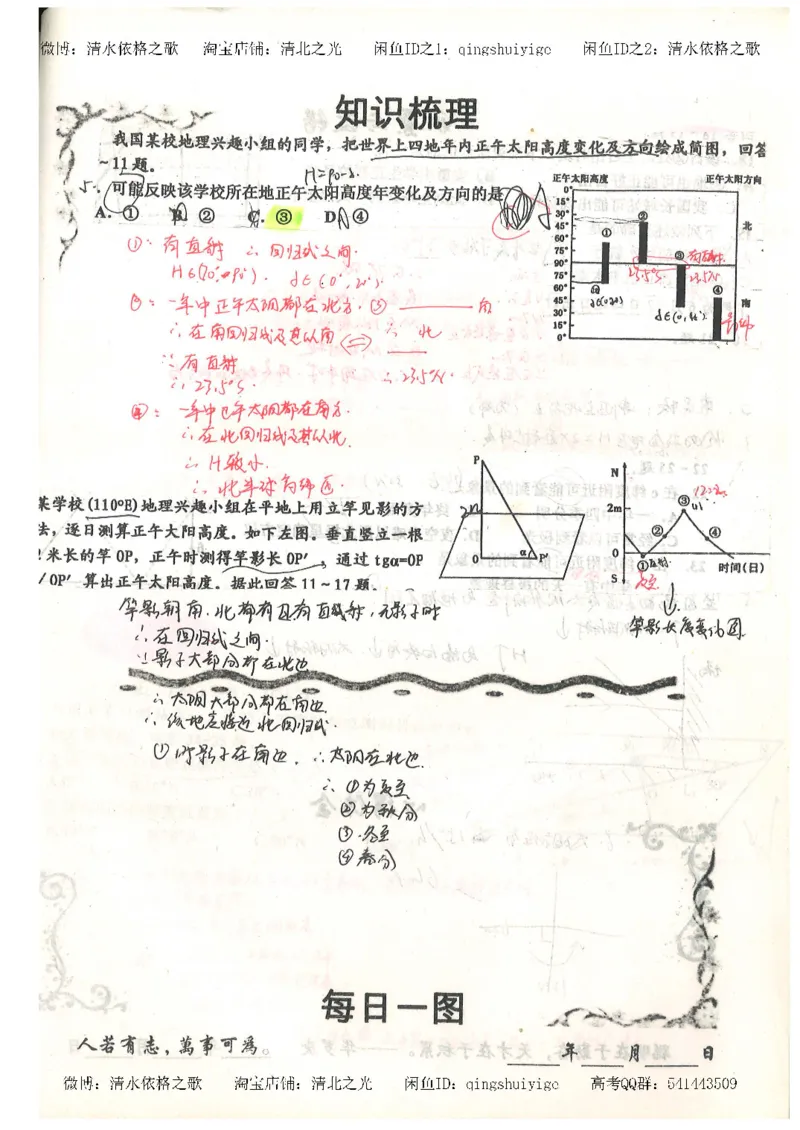 微博：清水依格之歌 淘宝店铺：清北之光 闲鱼ID之1：qingshuiyige 闲鱼ID之2：清水依格之歌
知识梳理
我国某校地理兴趣小组的同学，把世界上四地年内正午太阳高度变化及方向绘成简图，回答
~11题。
H=90-δ.
5. 可能反映该学校所在地正午太阳高度年变化及方向的是
A. ① B. ② C. ③ D. ④
正午太阳高度 正午太阳方向
0°
15°
30°
45°
60°
75°
90°
75°
60°
45°
30°
15°
0°
北
南
① ② ③ ④
有直射
23.5°S 23.5°N
①：有直射 ∴回归线之间.
②：一年中正午太阳都在北方. ③ 南
∴在南回归线及其以南 北
∵有直射
∴23.5°S. ∴23.5°N.
④：一年中正午太阳都在南方.
∴在北回归线及其以北.
∴H较小.
∴北半球高纬区.
某学校(110°E)地理兴趣小组在平地上用立竿见影的方
法，逐日测算正午太阳高度。如下左图。垂直竖立一根
2米长的竿OP，正午时测得竿影长OP′，通过tgα=OP
/OP′算出正午太阳高度。据此回答11~17题.
P
2m
O α P′
N
2m
0
S
① ② ③ ④
时间(日)
竿影长度变化图
竿影朝南.北都有且有直射,无影子时
∴在回归线之间.
∵影子大部分都在北边
∴太阳大部分都在南边
∴该地点临近北回归线.
①时影子在南边. ∴太阳在北边.
∴①为夏至
②为秋分
③.冬至
④春分
每日一图
人若有志，萬事可為。
年 月 日
微博：清水依格之歌 淘宝店铺：清北之光 闲鱼ID：qingshuiyige 高考QQ群：541443509